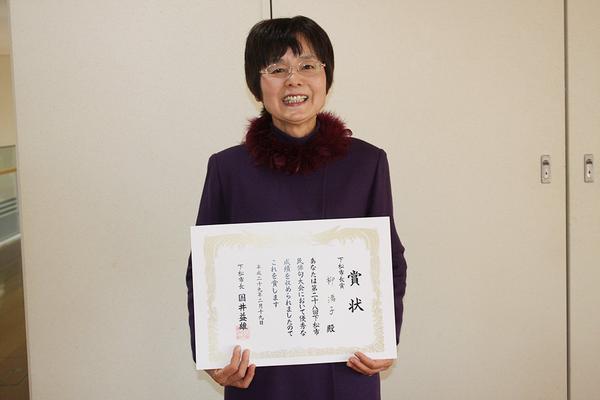 賞状
下松市長賞
柳 浩子 殿
あなたは第二十八回下松市
民俳句大会において優秀な
成績を収められましたので
これを賞します
平成二十九年二月十九日
下松市長 国井益雄